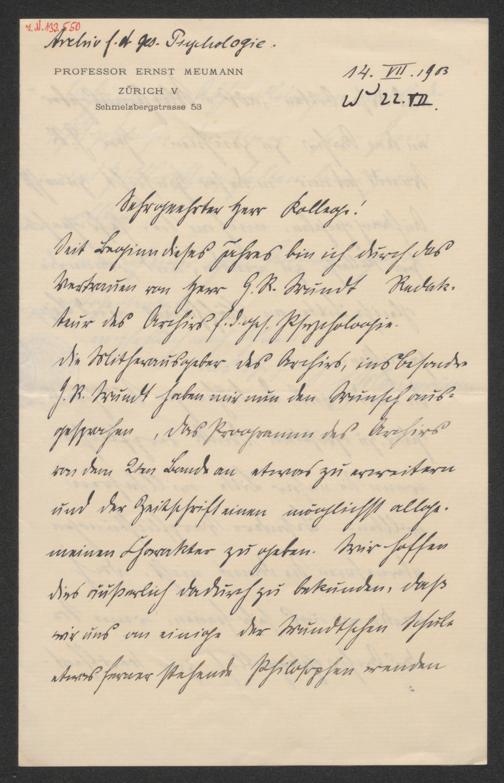 I.N. 193.550
Archiv f. d. ges. Psychologie.
PROFESSOR ERNST MEUMANN
ZÜRICH V
Schmelzbergstrasse 53
14. VII. 1903
22. VII.
Sehrgeehrter Herr Kollege!
Seit Beginn dieses Jahres bin ich durch das
Vertrauen von Herr G. R. Wundt Redak-
teur des Archivs f. d. ges. Psychologie.
Die Mitherausgeber des Archivs, insbesondre
G. R. Wundt haben mir nun den Wunsch aus-
gesprochen, das Programm des Archivs
von dem 2ten Bande an etwas zu erweitern
und der Zeitschrift einen möglichst allge-
meinen Charakter zu geben. Wir hoffen
dies äußerlich dadurch zu bekunden, daß
wir uns an einige der Wundtschen Schule
etwas ferner stehende Philosophen wenden